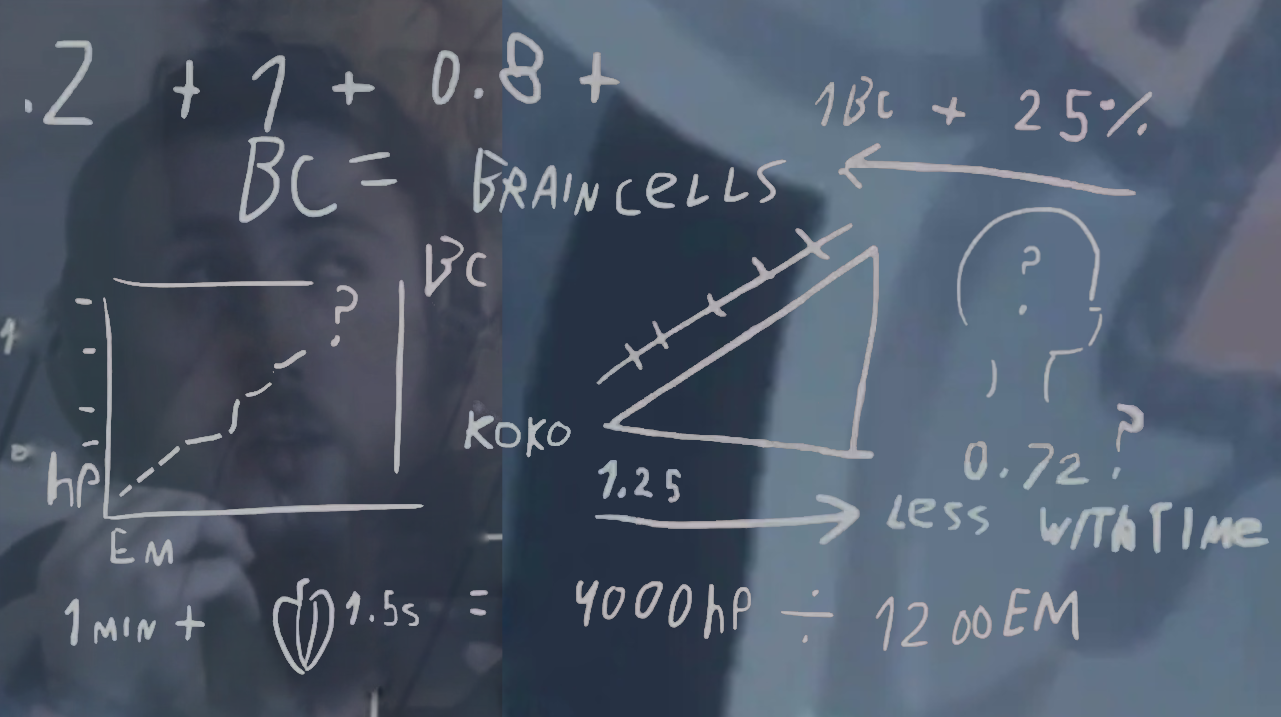 .2 + 1 + 0.8 +
1BC + 25%
BC = BRAINCELLS
BC
?
?
hp
EM
KOKO
1.25
0.72?
LESS WITH TIME
1 MIN + 1.5s = 4000hp ÷ 1200EM